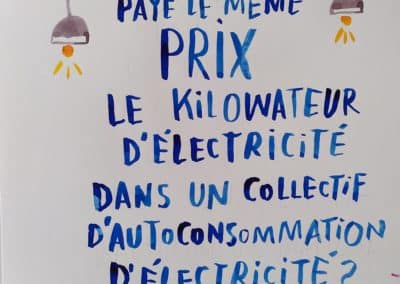 PAYE LE MÊME
PRIX
LE KILOWATEUR
D'ÉLECTRICITÉ
DANS UN COLLECTIF
D'AUTOCONSOMMATION
D'ÉLECTRICITÉ ?